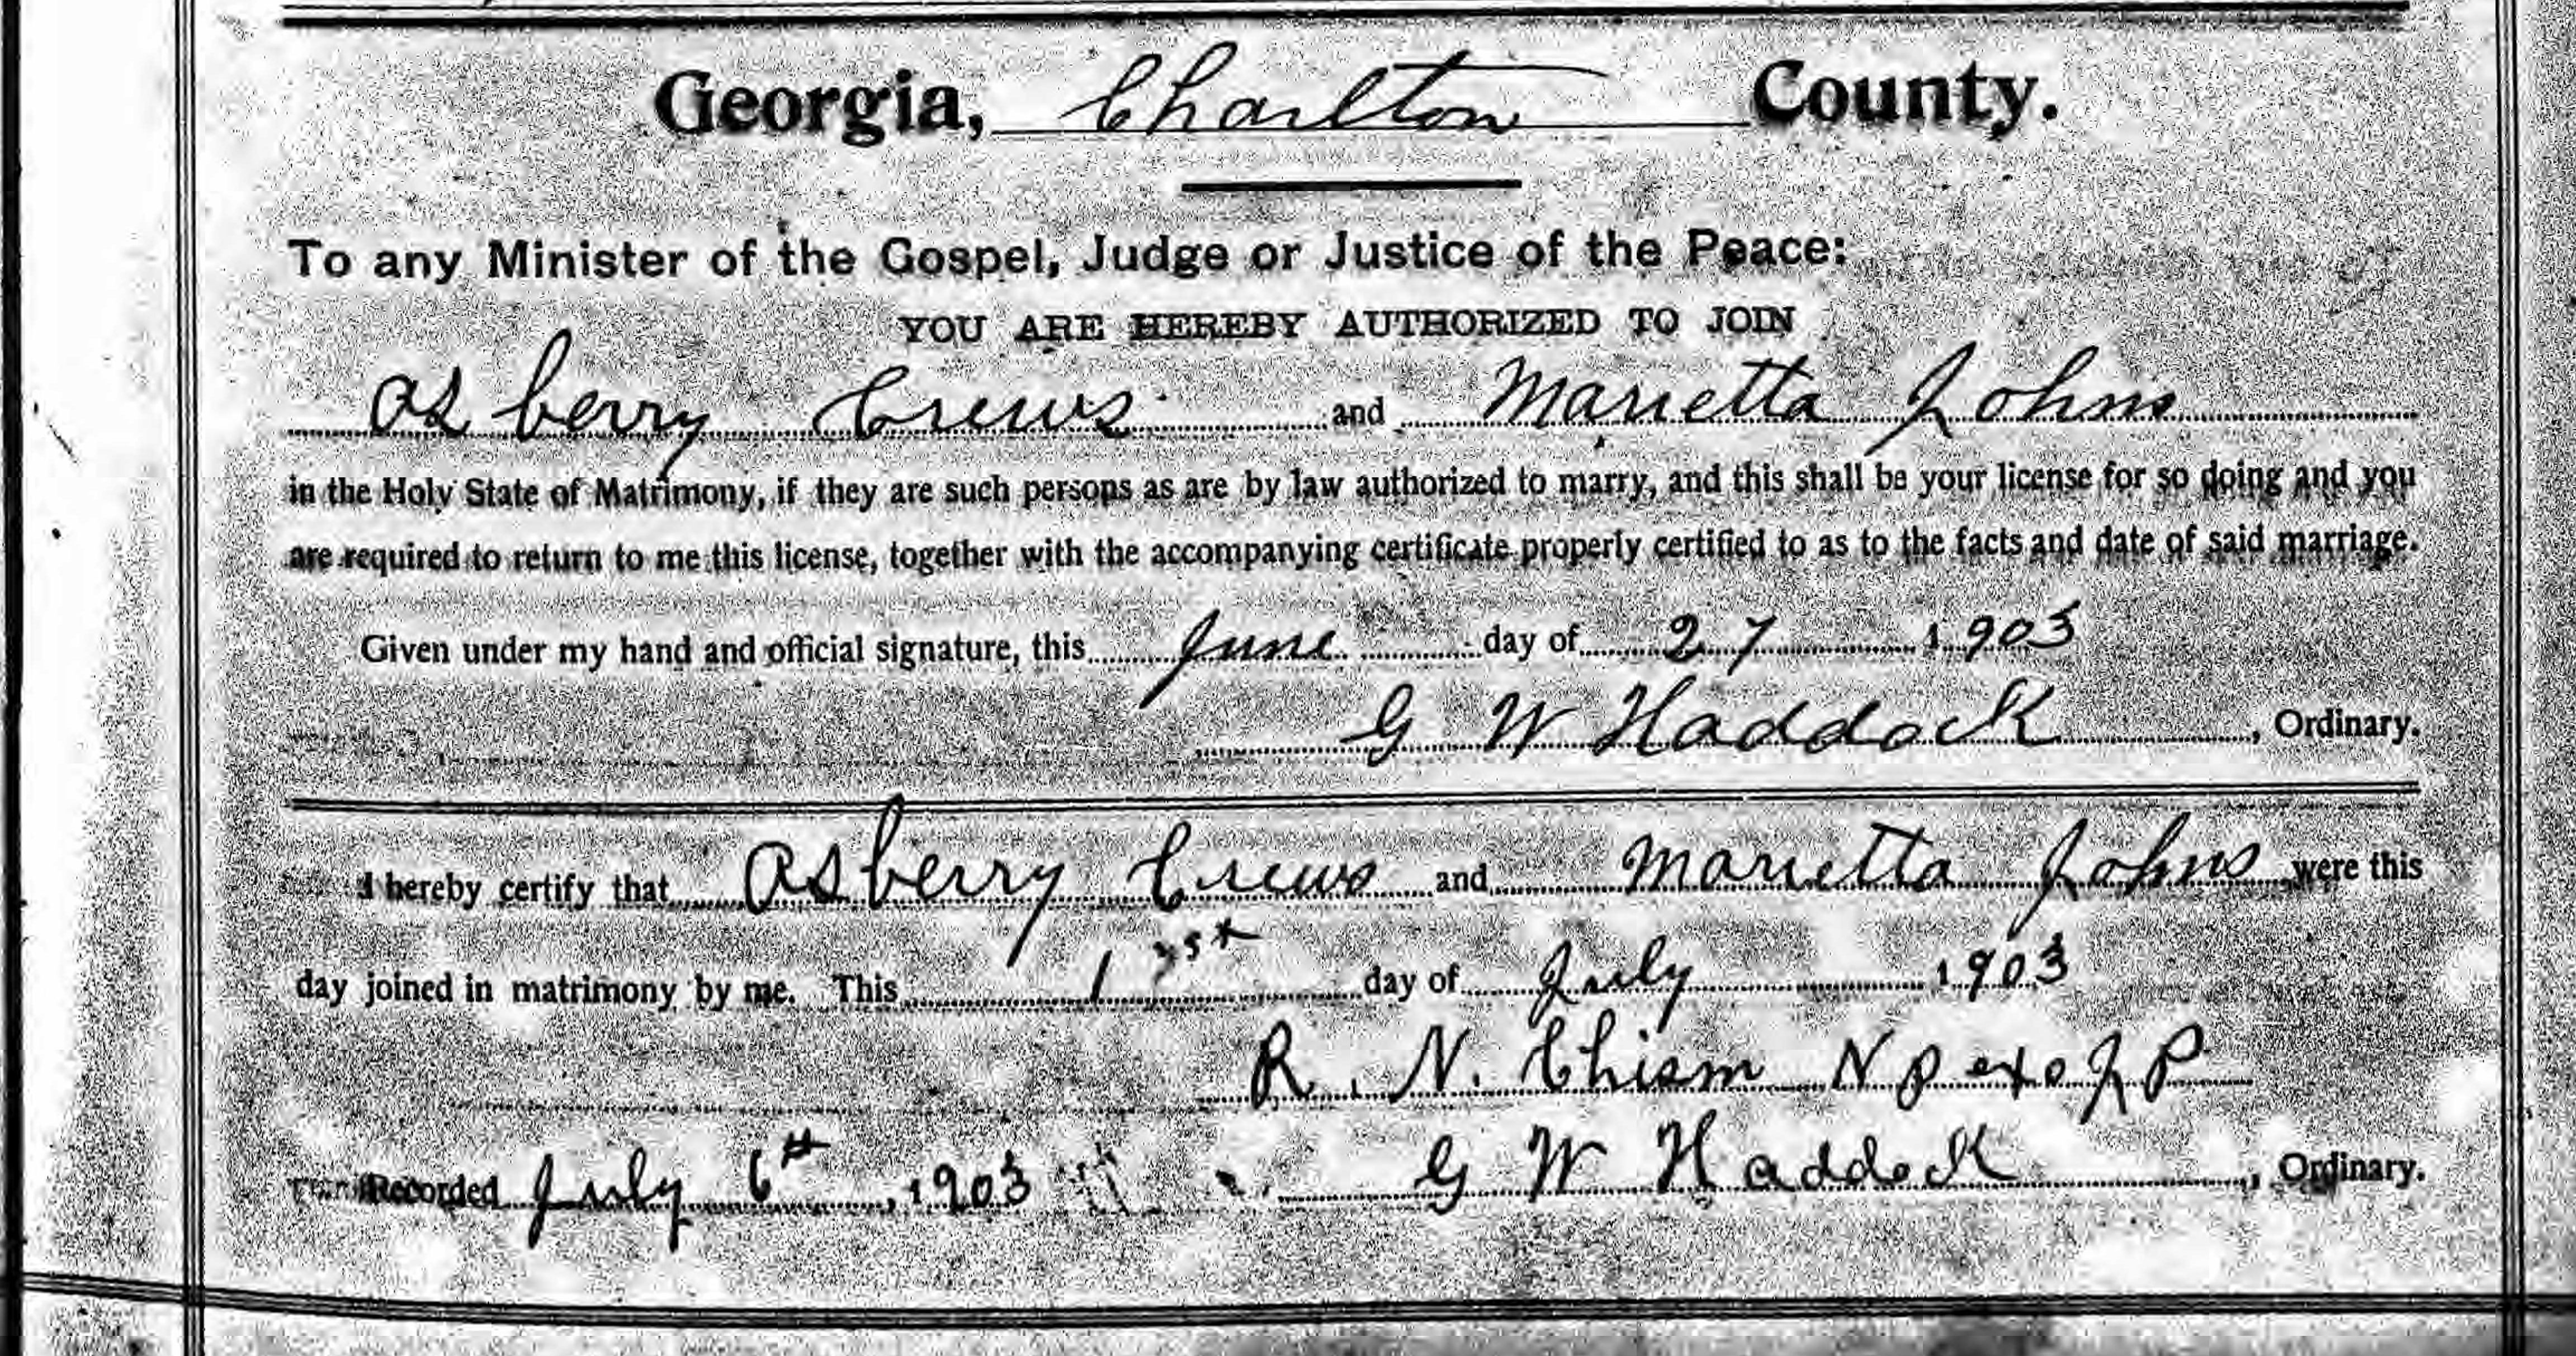 Georgia, Charlton County.
To any Minister of the Gospel, Judge or Justice of the Peace:
YOU ARE HEREBY AUTHORIZED TO JOIN
Asberry Crews and Marietta Johns
in the Holy State of Matrimony, if they are such persons as are by law authorized to marry, and this shall be your license for so doing and you
are required to return to me this license, together with the accompanying certificate properly certified to as to the facts and date of said marriage.
Given under my hand and official signature, this June day of 27 1903
G W Haddock, Ordinary.
I hereby certify that Asberry Crews and Marietta Johns were this
day joined in matrimony by me. This 1st day of July 1903
R. N. Chism N P exo J P
Recorded July 6th, 1903 G W Haddock, Ordinary.